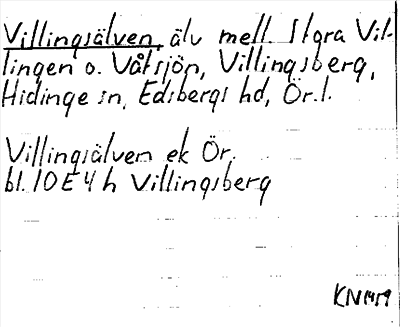 Villingsälven, älv mell Stora Vil-
lingen o. Våtsjön, Villingsberg,
Hidinge sn, Edsbergs hd, Ör.l.
Villingsälven ek Ör.
bl. 10E4h Villingsberg